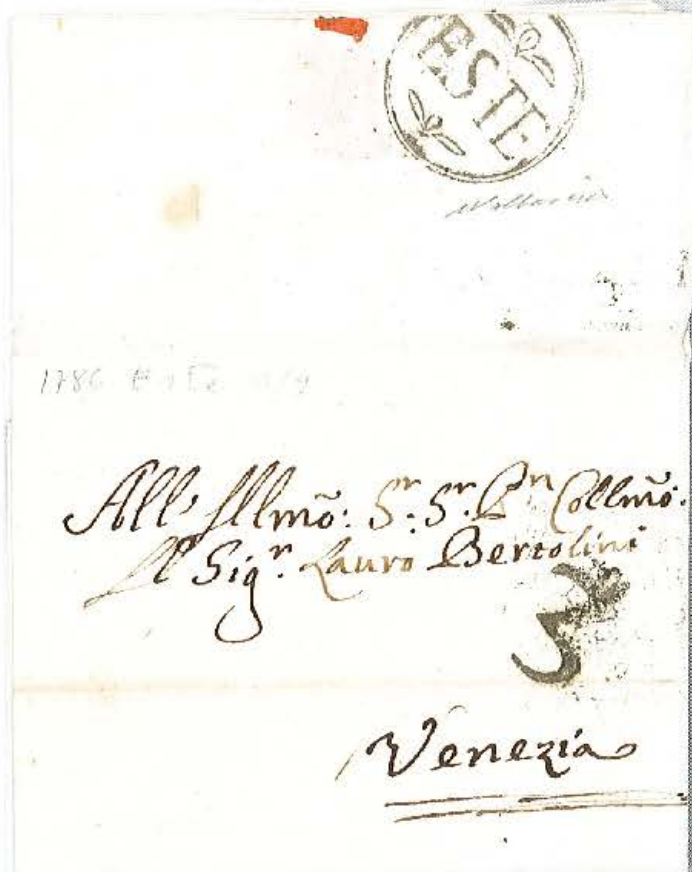 ESTE
1786
All' Illmõ: Sʳ: Sʳ: Pⁿ Collmõ:
Il Sigʳ: Lauro Bertolini
3
Venezia